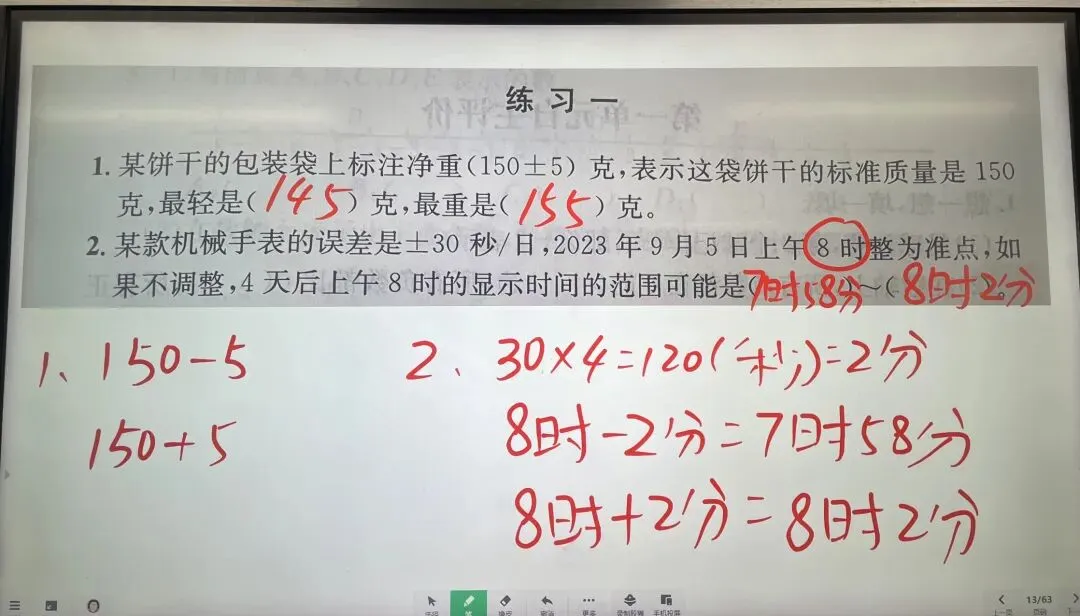 练习一
1. 某饼干的包装袋上标注净重(150±5)克,表示这袋饼干的标准质量是 150
克,最轻是(145)克,最重是(155)克。
2. 某款机械手表的误差是±30 秒/日,2023 年 9 月 5 日上午 8 时整为准点,如
果不调整,4 天后上午 8 时的显示时间的范围可能是(7时58分)~(8时2分)。
1、150-5
150+5
2、30×4=120(秒)=2分
8时-2分=7时58分
8时+2分=8时2分
13/63